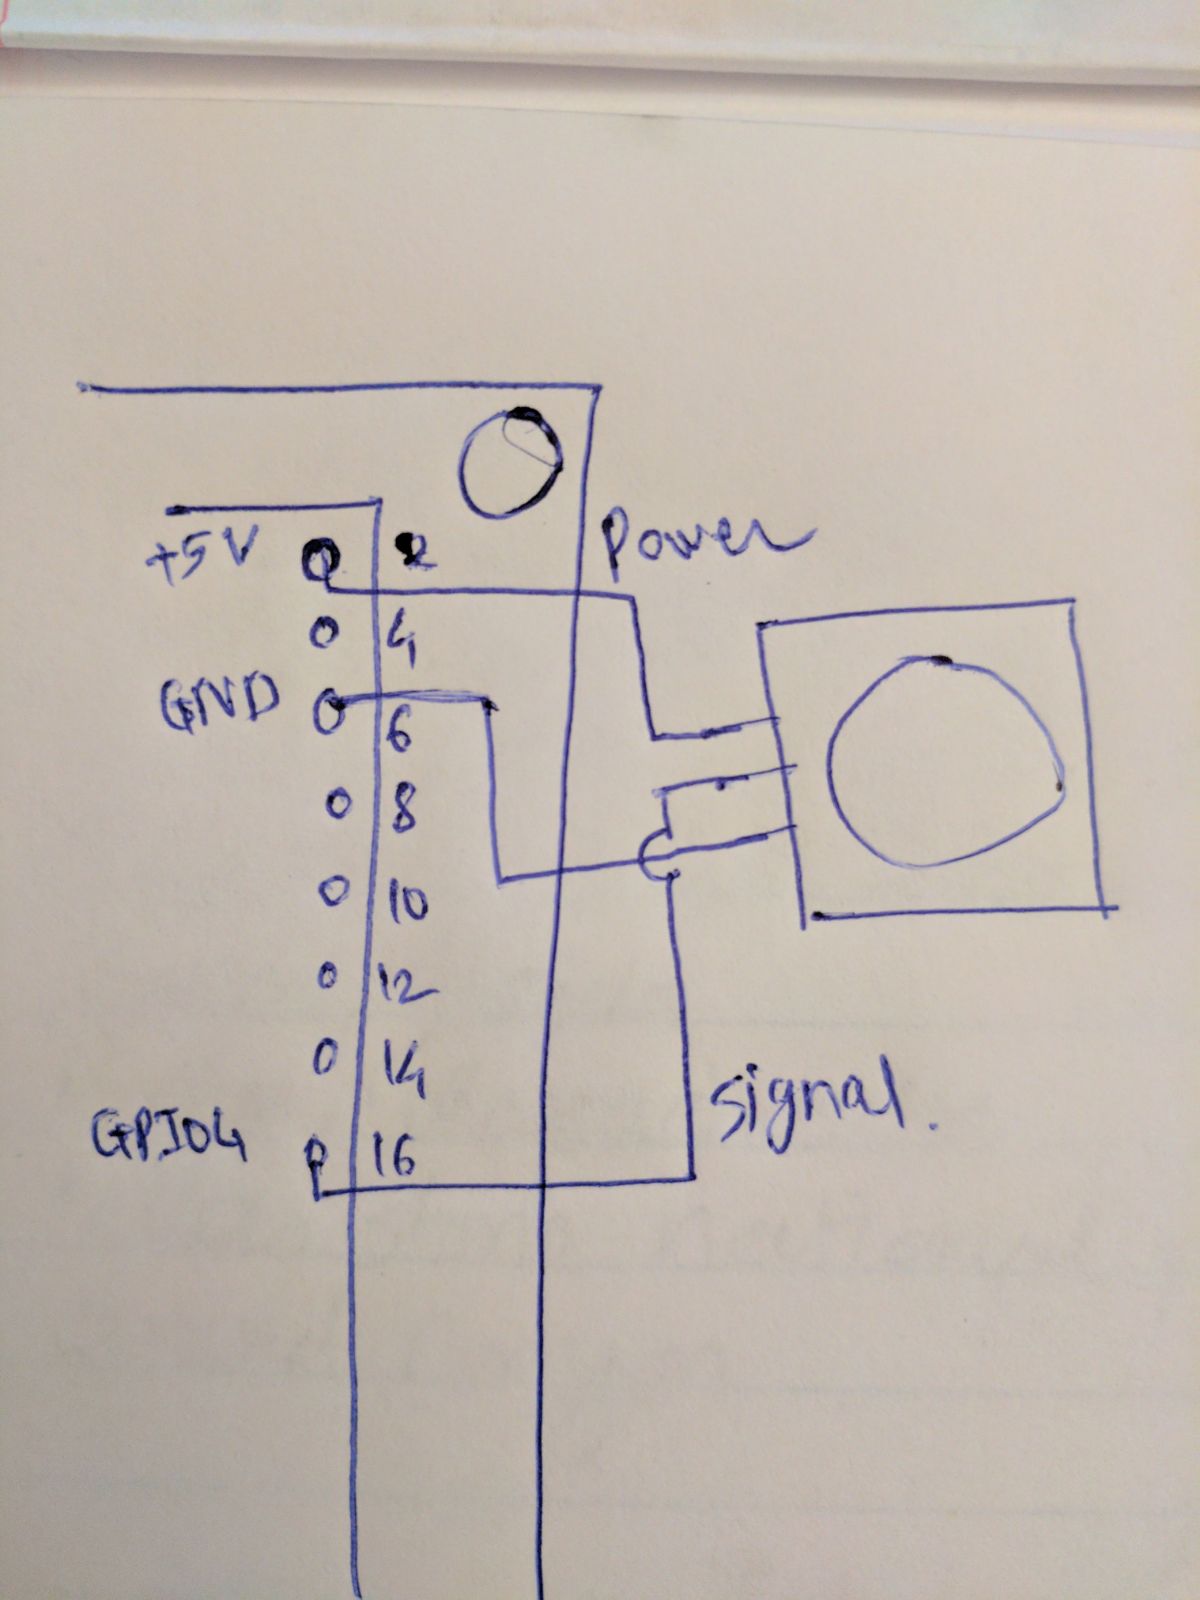 Power
+5V 2
4
GND 6
8
10
12
14
GPIO4 16
signal.